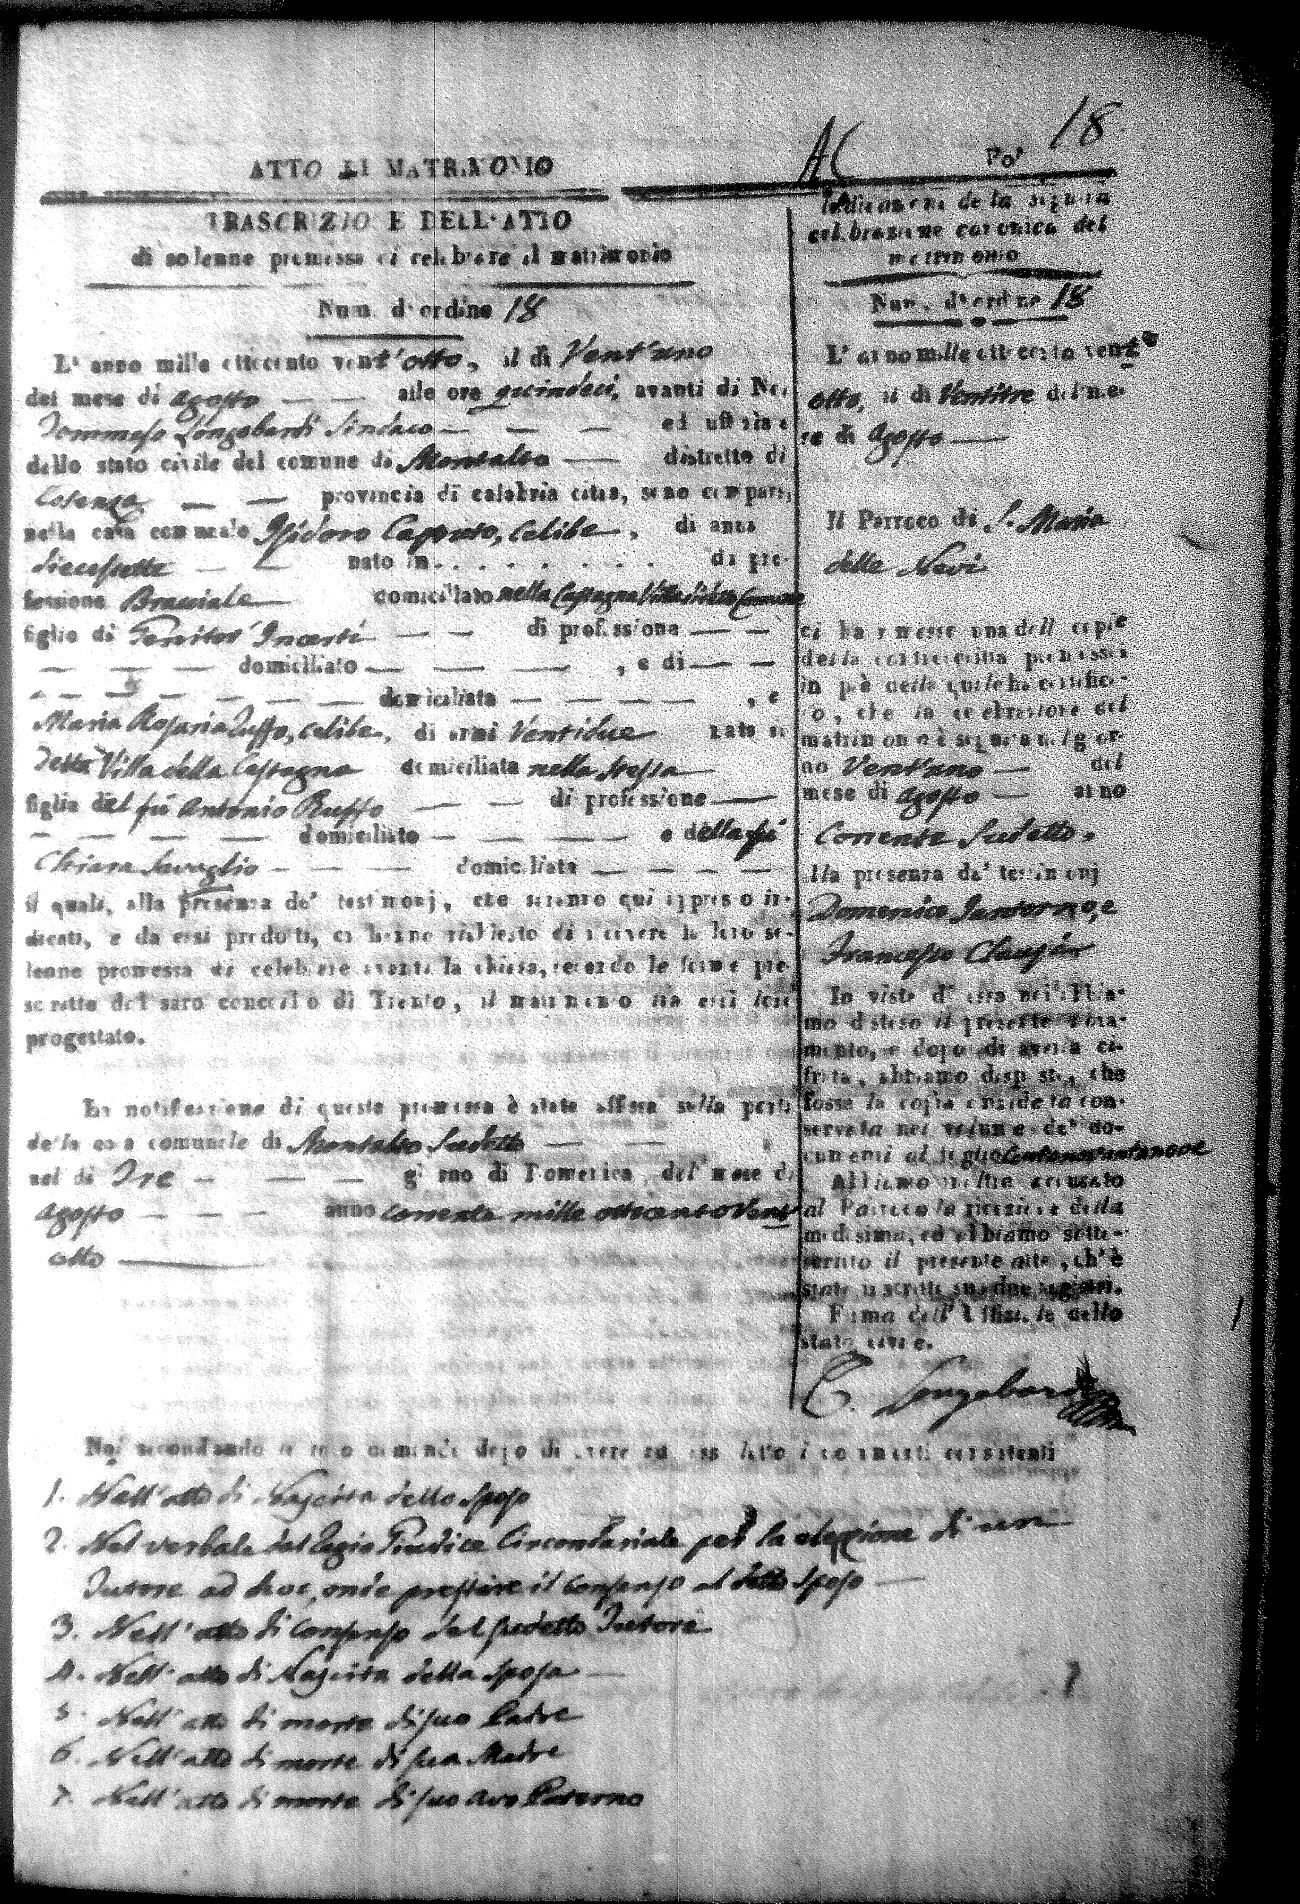 18
AC
Fo'
ATTO DI MATRIMONIO
TRASCRIZIONE DELL'ATTO
di solenne promessa di celebrare il matrimonio
Num. d'ordine 18
L'anno mille ottocento vent'otto, il di Vent'uno
del mese di Agosto alle ore quindeci, avanti di Noi
Tommaso Longobardi Sindaco ed uffiziale
dello stato civile del comune di Montalto distretto di
Cosenza provincia di calabria citra, sono comparsi
nella casa comunale Isidoro Caputo, celibe, di anni
diecisette nato in . . . . . . . . di pro-
fessione Bracciale domiciliato nella Castagna Villa di detto Comune
figlio di Genitori Incerti di professione
domiciliato , e di
domiciliata , e
Maria Rosaria Ruffo, celibe, di anni Ventidue nata in
detta Villa della Castagna domiciliata nella stessa
figlia del fù Antonio Ruffo di professione
domiciliato e della fù
Chiara Savaglio domiciliata
i quali, alla presenza de' testimonj, che saranno qui appresso in-
dicati, e da essi prodotti, ci hanno richiesto di ricevere la loro so-
lenne promessa di celebrare avanti la chiesa, secondo le forme pre-
scritte dal sacro concilio di Trento, il matrimonio tra essi loro
progettato.
La notificazione di questa promessa è stata affissa sulla porta
della casa comunale di Montalto sudetto
nel di Tre giorno di Domenica del mese di
Agosto anno corrente mille ottocento Vent'
otto
Noi secondando la loro domanda dopo di avere ad essi letto i documenti consistenti
1. Nell'atto di Nascita dello sposo
2. Nel verbale del Regio Giudice Circondariale per la elezione di un
Tutore ad hoc, onde prestare il consenso al detto sposo
3. Nell'atto di consenso del sudetto Tutore
4. Nell'atto di Nascita della sposa
5. Nell'atto di morte di suo Padre
6. Nell'atto di morte di sua Madre
7. Nell'atto di morte di suo Avo Paterno
Indicazione della seguita
celebrazione canonica del
matrimonio
Num. d'ordine 18
L'anno mille ottocento vent'
otto, il di Ventitre del me-
se di Agosto
Il Parroco di S. Maria
delle Nevi
ci ha rimesse una delle copie
della controscritta promessa
in piè della quale ha certifica-
to, che la celebrazione del
matrimonio è seguita nel gior-
no Vent'uno del
mese di Agosto anno
Corrente sudetto.
Alla presenza de' testimonj
Domenico Santorno, e
Francesco
In vista di essa noi abbia-
mo disteso il presente nota-
mento, e dopo di averla ci-
frata, abbiamo disposto, che
fosse la copia anzidetta con-
servata nel volume de' do-
cumenti al foglio Centonovantanove
Abbiamo inoltre accusato
al Parroco la ricezione della
medisima, ed abbiamo sotto-
scritto il presente atto, ch'è
stato inscritto su i due registri.
Firma dell'Uffiziale dello
stato civile.
T. Longobardi